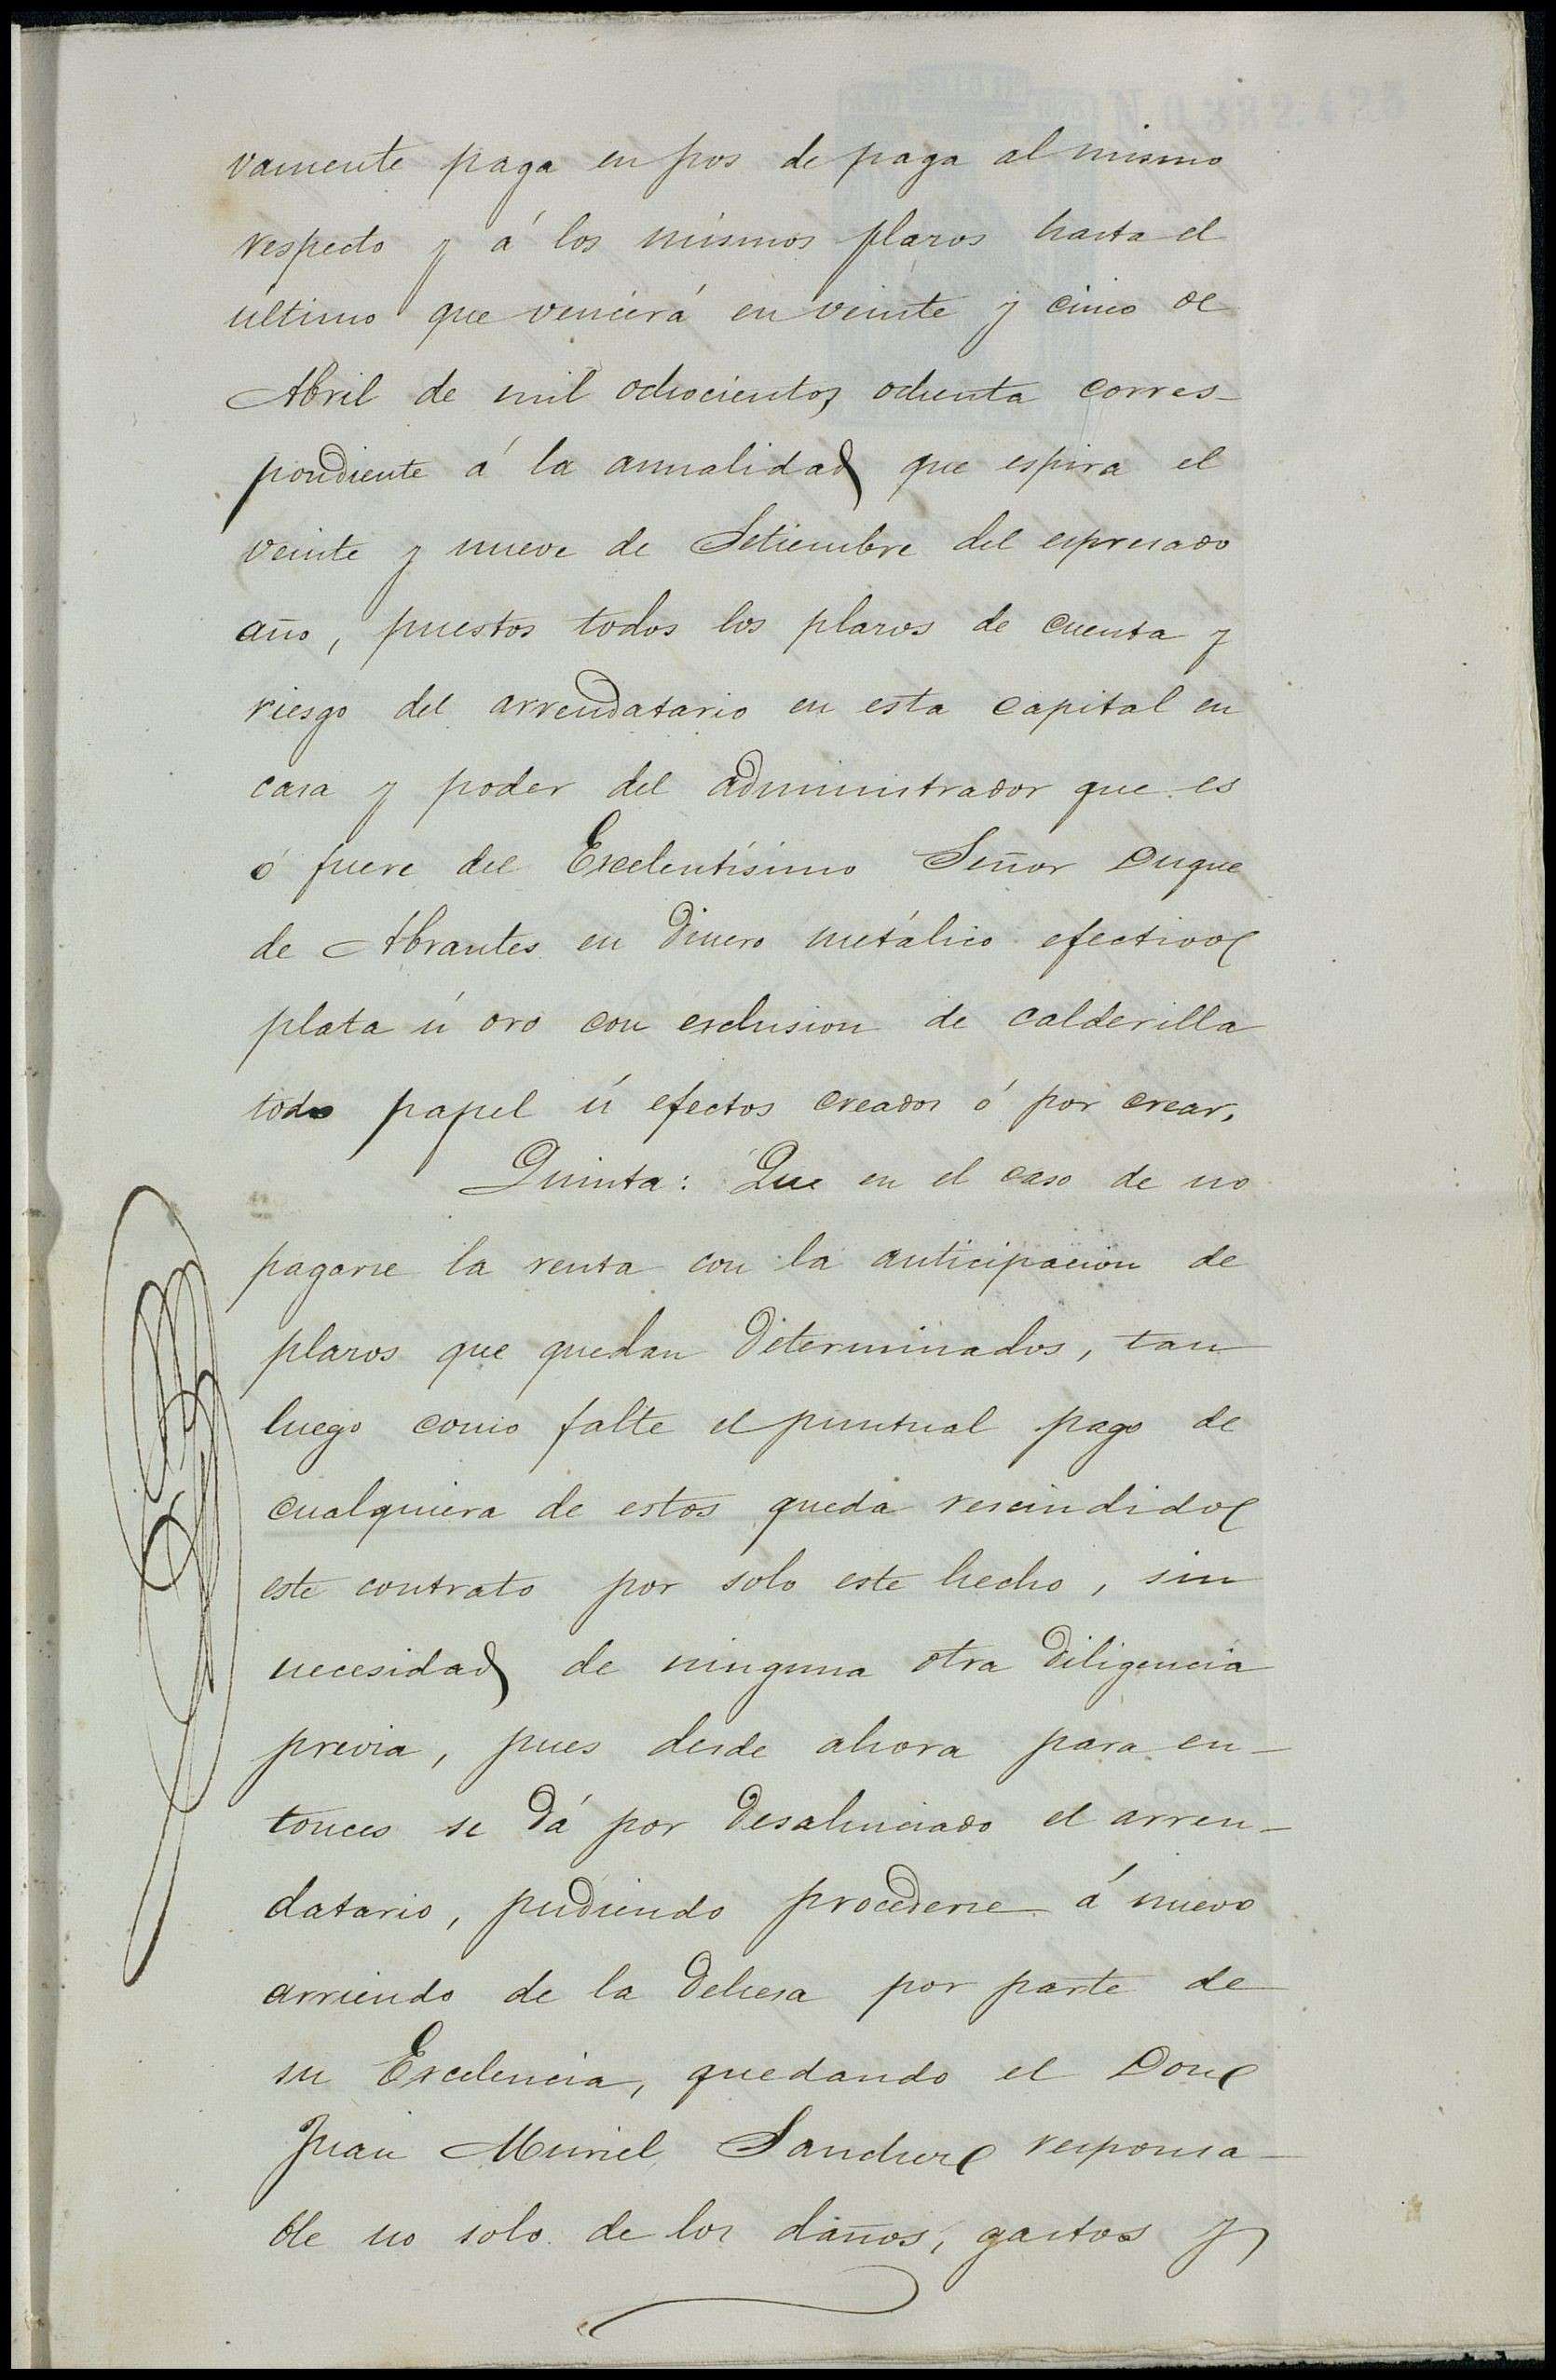 vamente paga en pos de paga al mismo
respecto y á los mismos plazos hasta el
último que vencerá en veinte y cinco de
Abril de mil ochocientos ochenta corres-
pondiente á la anualidad que espira el
veinte y nueve de Setiembre del espresado
año, puestos todos los plazos de cuenta y
riesgo del arrendatario en esta capital en
casa y poder del administrador que es
ó fuere del Excelentísimo Señor Duque
de Abrantes en dinero metálico efectivo
plata ú oro con exclusion de calderilla
todo papel ú efectos creados ó por crear.
Quinta: Que en el caso de no
pagarse la renta con la anticipacion de
plazos que quedan determinados, tan
luego como falte el puntual pago de
cualquiera de estos queda rescindido
este contrato por solo este hecho, sin
necesidad de ninguna otra diligencia
previa, pues desde ahora para en-
tonces se dá por desahuciado el arren-
datario, pudiendo procederse á nuevo
arriendo de la dehesa por parte de
su Excelencia, quedando el Don
Juan Muriel Sanchez responsa-
ble no solo de los daños, gastos y